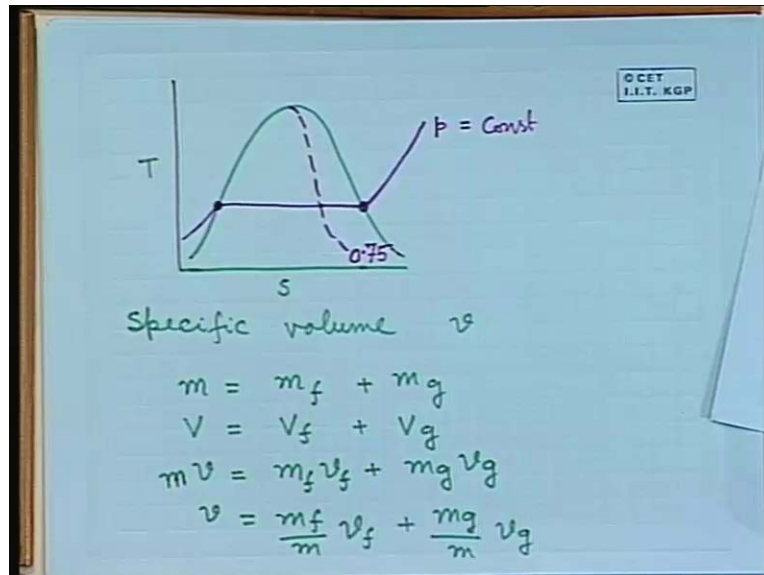 © CET
I.I.T. KGP
p = Const
T
0.75
S
Specific volume v
m = m_f + m_g
V = V_f + V_g
m v = m_f v_f + m_g v_g
v = m_f/m v_f + m_g/m v_g